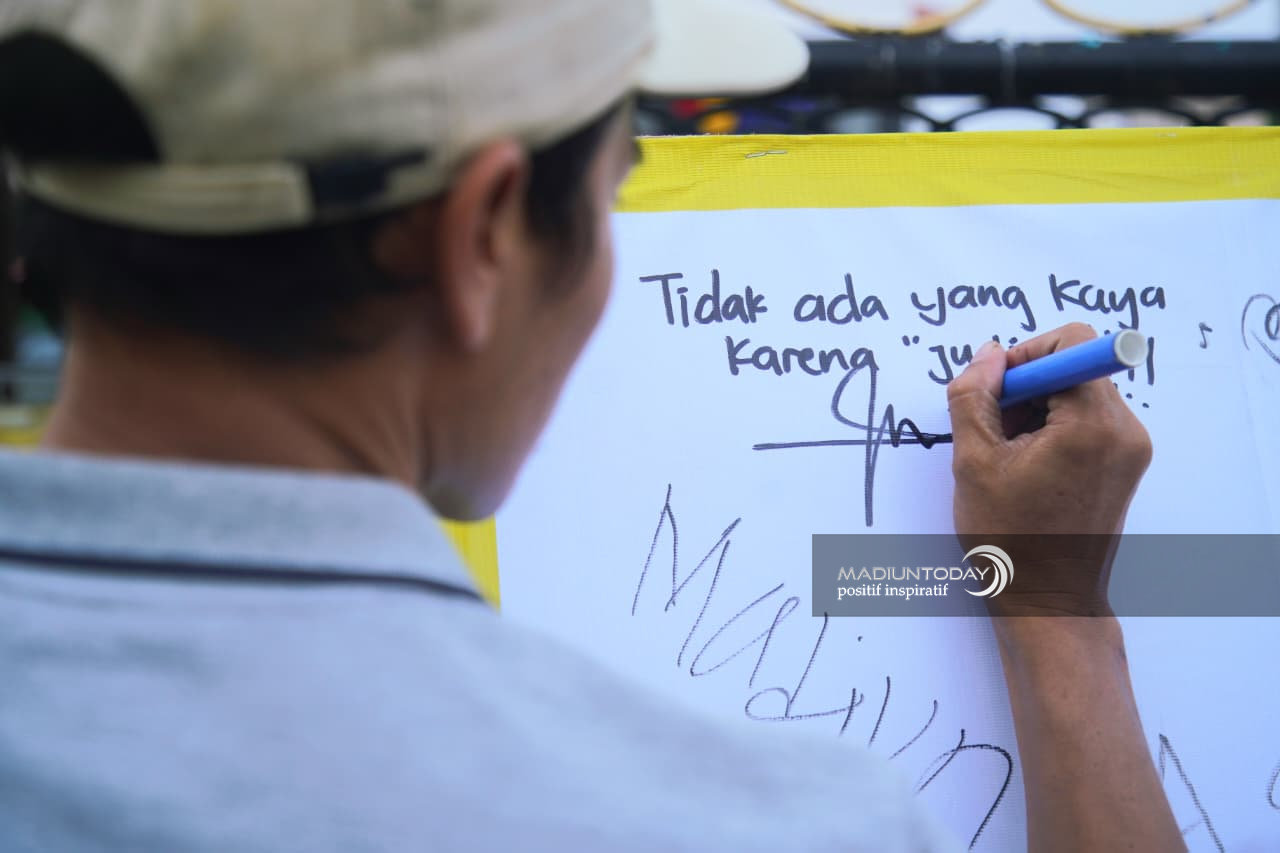 Tidak ada yang kaya
karena "ju
Madiun
MADIUNTODAY
positif inspiratif